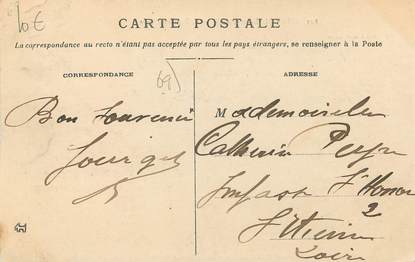 10€
CARTE POSTALE
La correspondance au recto n'étant pas acceptée par tous les pays étrangers, se renseigner à la Poste
CORRESPONDANCE
69
ADRESSE
Bon Souvenir
Mademoiselle
Catherine
Impasse St Honoré
2
St Etienne
Loire